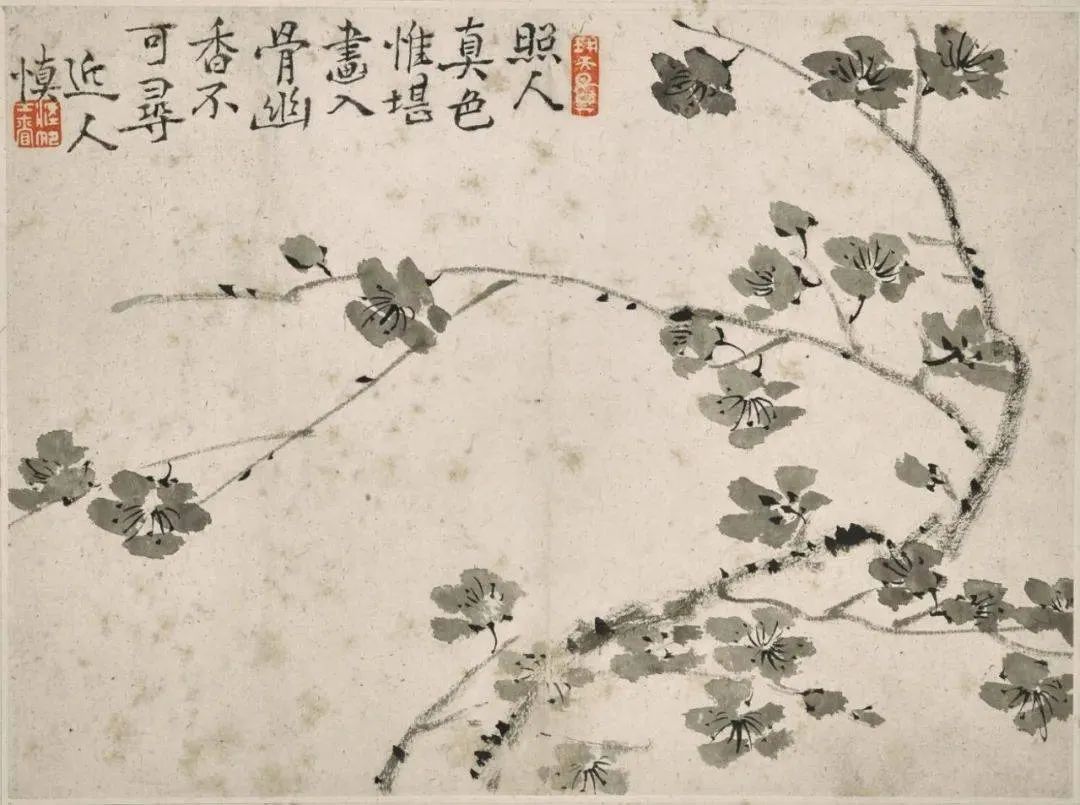 照人
真色
惟堪
畫入
骨幽
香不
可尋
近人
慎